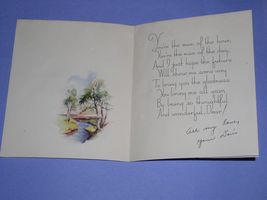 You're the man of the hour,
You're the man of the day,
And I just hope the future
Will show me some way
To bring you the gladness
You bring me all year
By being so thoughtful
And wonderful, Dear!
All my love,
your